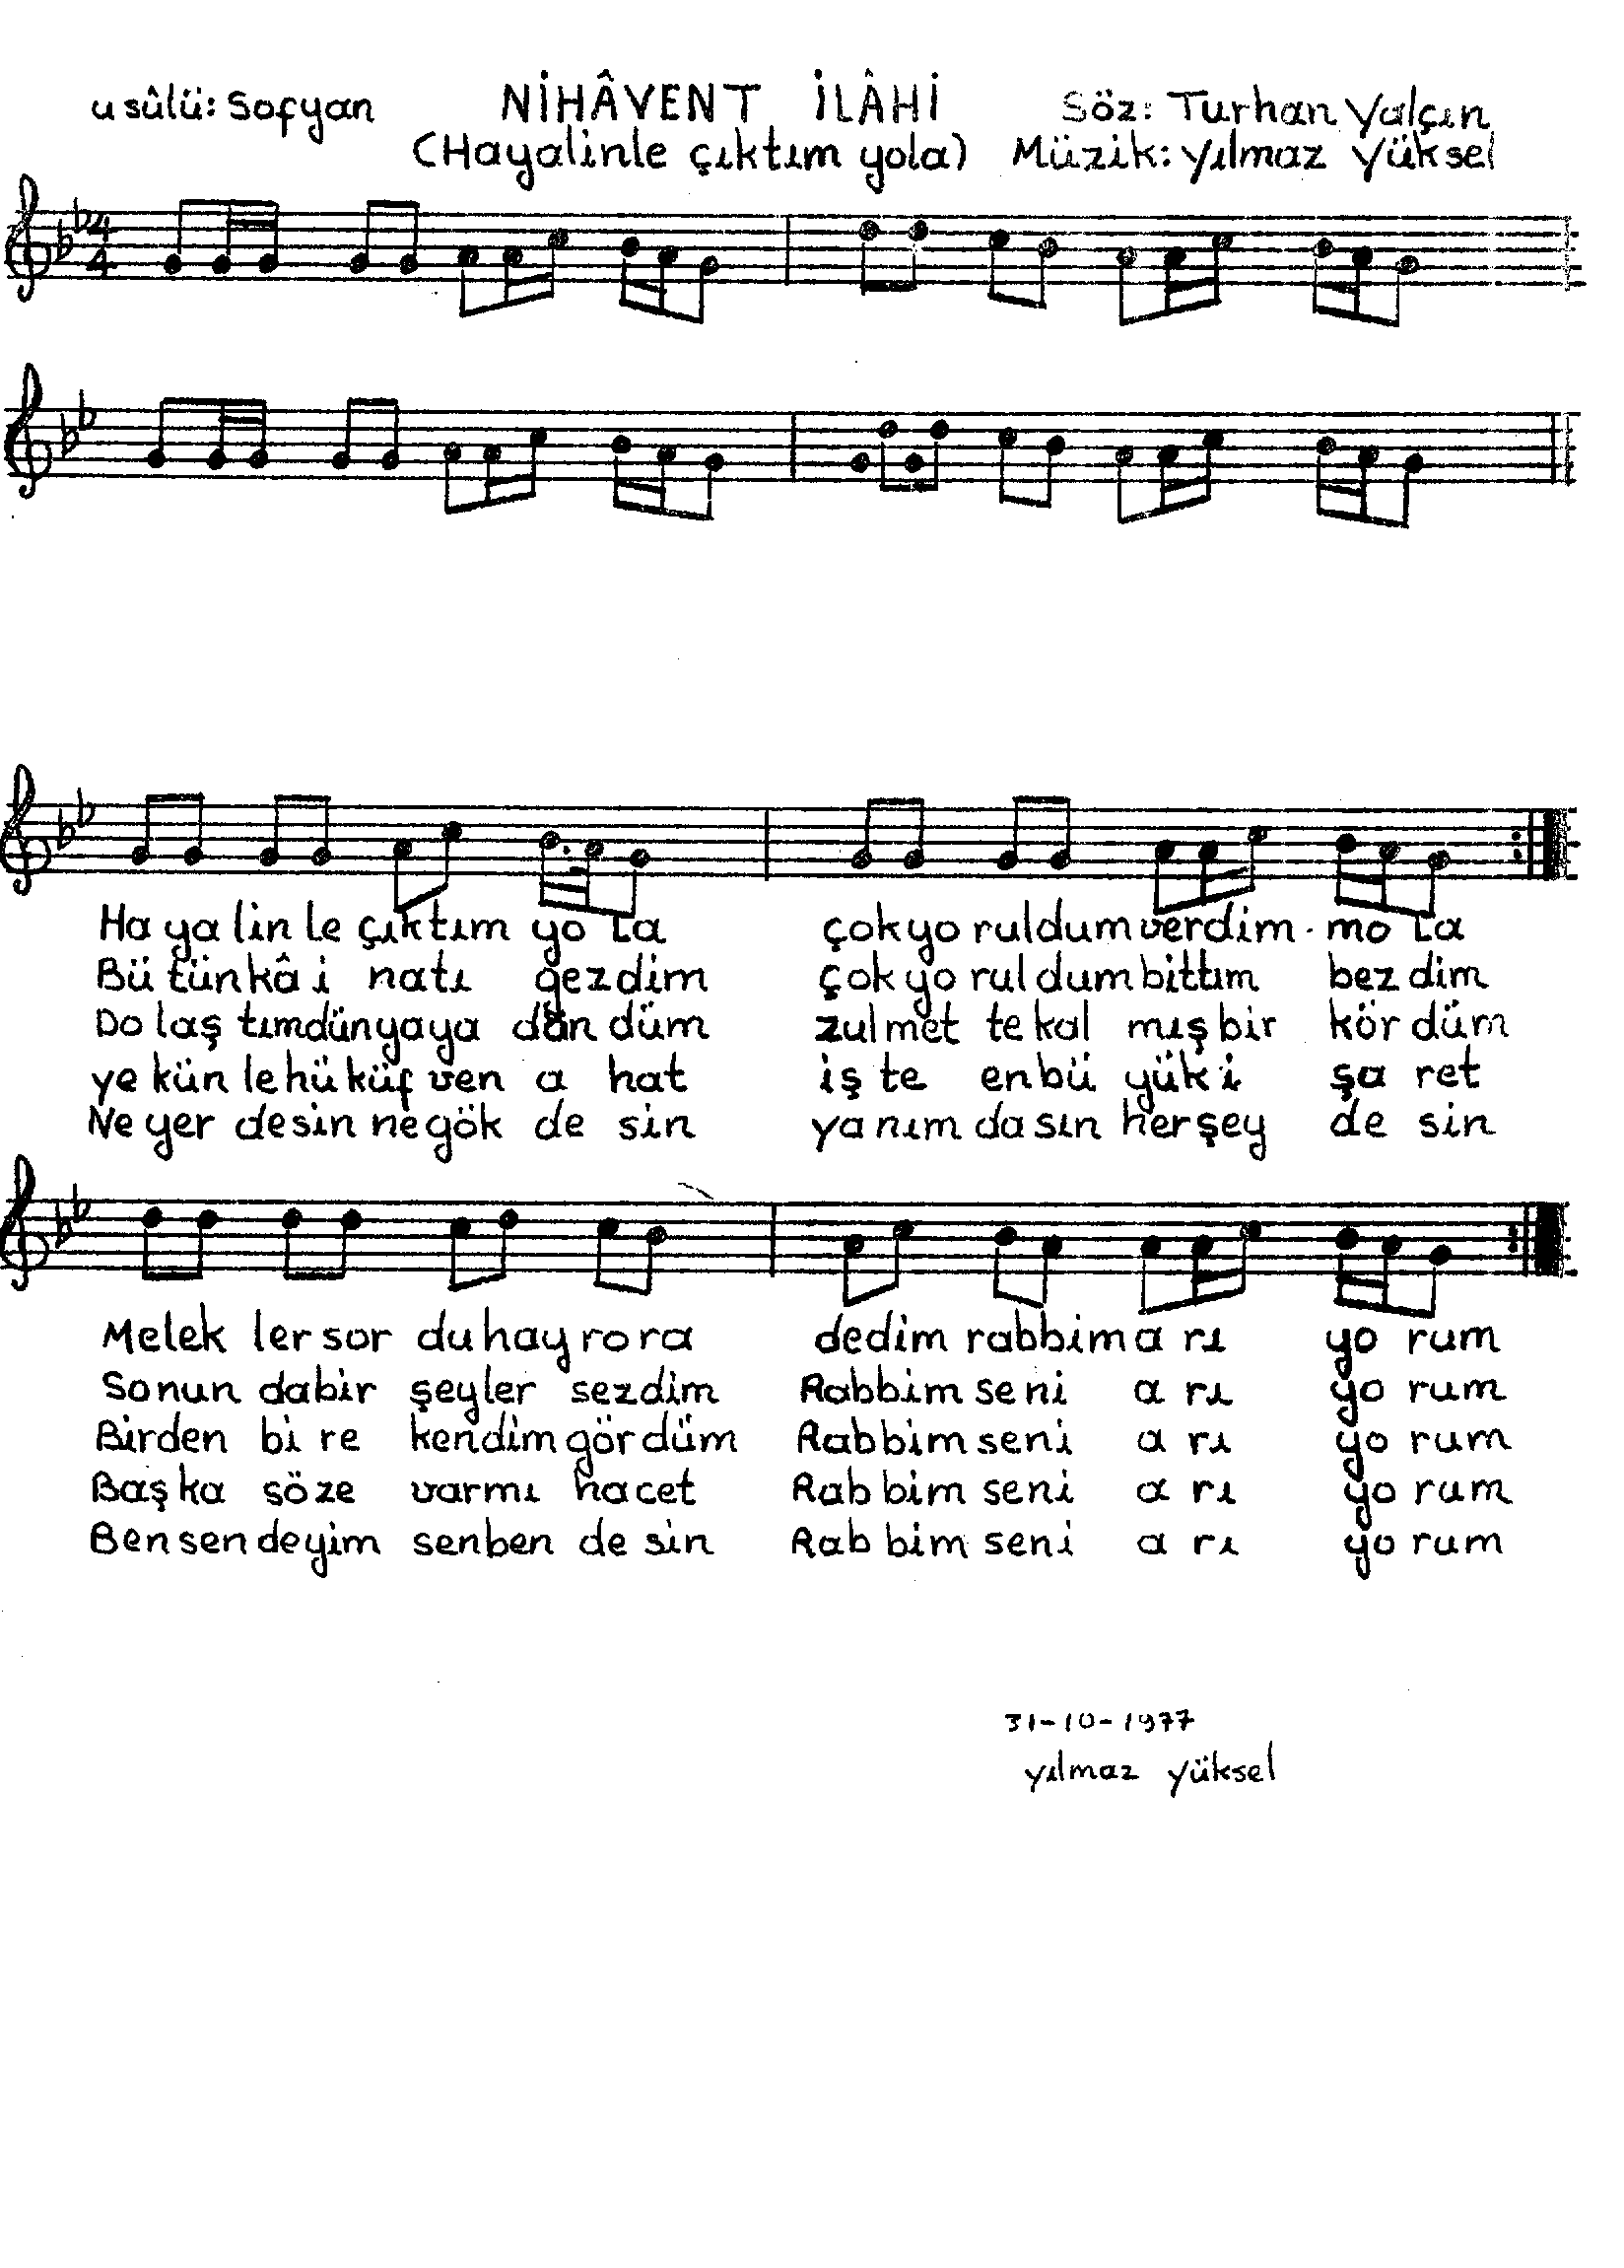 usûlü: Sofyan NİHÂVENT İLÂHİ Söz: Turhan Yalçın
(Hayalinle çıktım yola) Müzik: Yılmaz Yüksel
4
4
Ha ya lin le çıktım yo La çok yo ruldum verdim mo La
Bü tün kâ i natı gezdim çok yo rul dum bittim bez dim
Do laş tım dünyaya dön düm zulmet te kal mış bir kör düm
ye kün le hü küf ven a hat iş te en bü yük i şa ret
Ne yer desin ne gök de sin ya nım da sın herşey de sin
Melek ler sor du hay ro ra dedim rabbim a rı yo rum
Sonun da bir şeyler sezdim Rabbim se ni a rı yo rum
Birden bi re kendim gördüm Rabbim seni a rı yo rum
Başka söze varmı hacet Rab bim seni a rı yo rum
Ben sen deyim senben de sin Rab bim seni a rı yo rum
31-10-1977
yılmaz yüksel